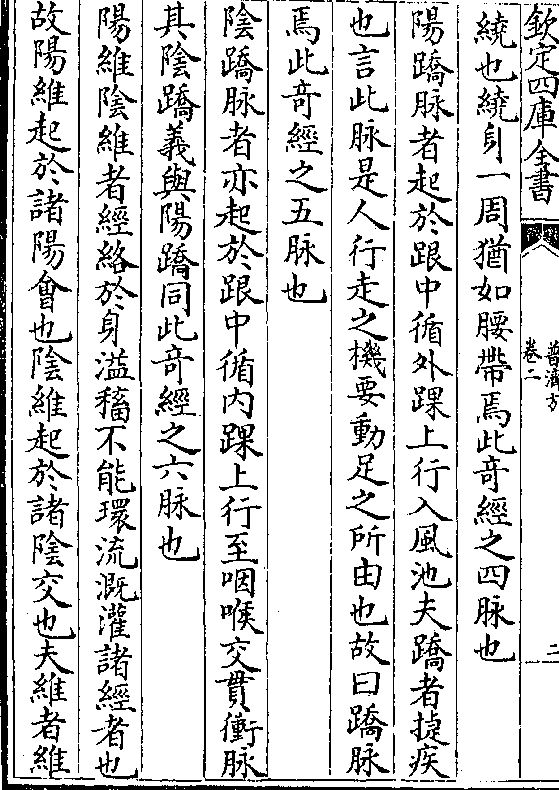 欽定四庫全書
普濟方
卷二
二
繞也繞身一周猶如腰帶焉此奇經之四脉也
陽蹻脉者起於跟中循外踝上行入風池夫蹻者捷疾
也言此脉是人行走之機要動足之所由也故曰蹻脉
焉此竒經之五脉也
陰蹻脉者亦起於跟中循内踝上行至咽喉交貫衝脉
其陰蹻義與陽蹻同此竒經之六脉也
陽維陰維者經絡於身溢稸不能環流溉灌諸經者也
故陽維起於諸陽會也陰維起於諸陰交也夫維者維